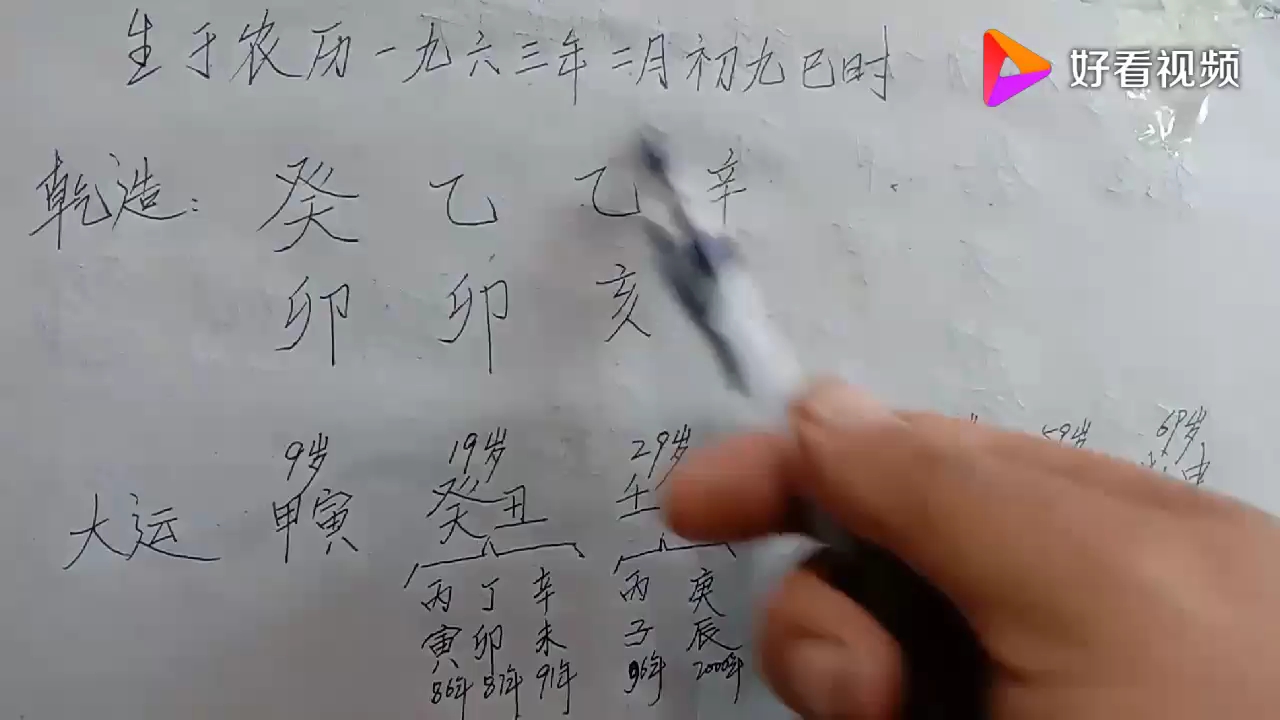 生于农历一九六三年二月初九巳时
好看视频
乾造：癸 乙 乙 辛
卯 卯 亥
9岁 19岁 29岁 59岁 69岁
大运 甲寅 癸丑 壬
丙 丁 辛 丙 庚
寅 卯 未 子 辰
86年 87年 91年 96年 2000年